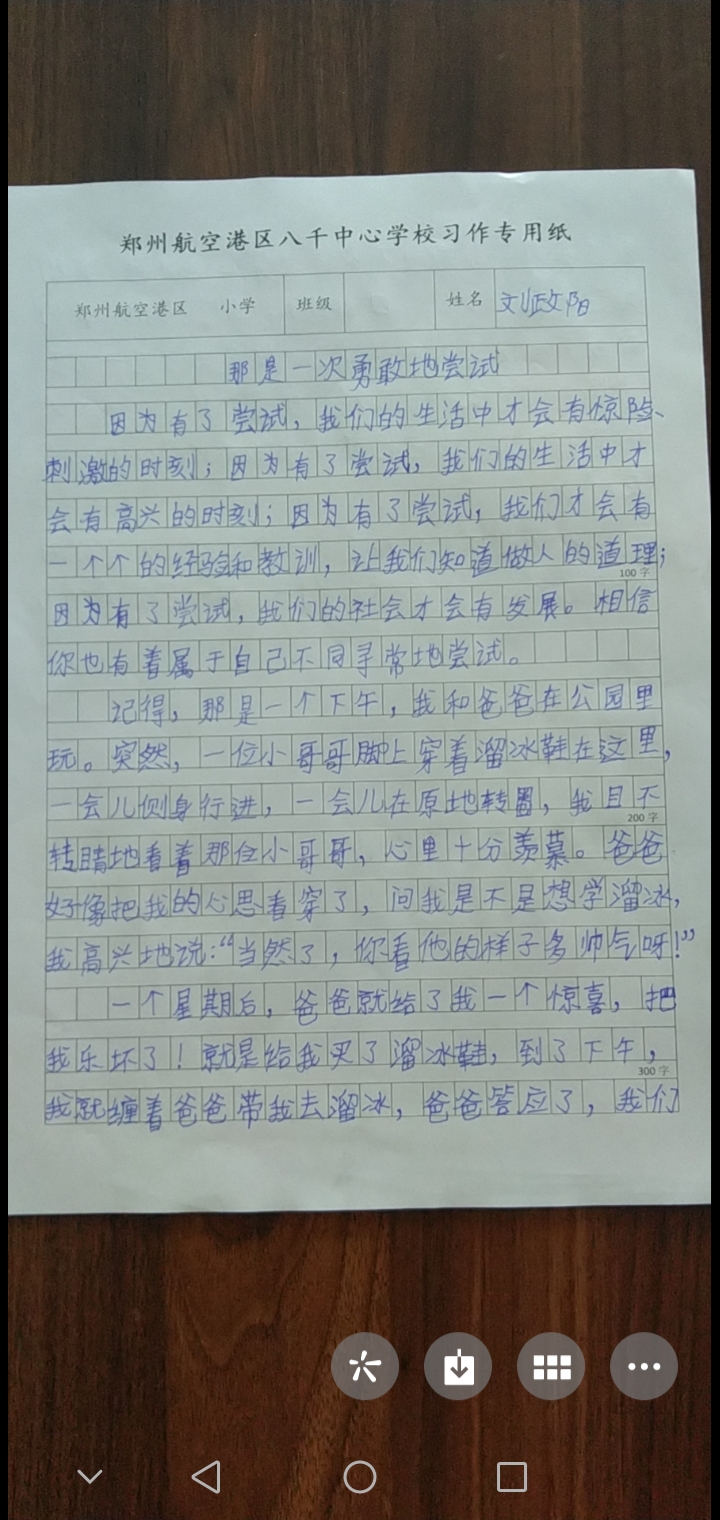 郑州航空港区八千中心学校习作专用纸
郑州航空港区 小学 班级 姓名 刘政阳
那是一次勇敢地尝试
因为有了尝试，我们的生活中才会有惊险、
刺激的时刻；因为有了尝试，我们的生活中才
会有高兴的时刻；因为有了尝试，我们才会有
一个个的经验和教训，让我们知道做人的道理；
100字
因为有了尝试，我们的社会才会有发展。相信
你也有着属于自己不同寻常地尝试。
记得，那是一个下午，我和爸爸在公园里
玩。突然，一位小哥哥脚上穿着溜冰鞋在这里，
一会儿侧身行进，一会儿在原地转圈，我目不
200字
转睛地看着那位小哥哥，心里十分羡慕。爸爸
好像把我的心思看穿了，问我是不是想学溜冰，
我高兴地说：“当然了，你看他的样子多帅气呀！”
一个星期后，爸爸就给了我一个惊喜，把
我乐坏了！就是给我买了溜冰鞋，到了下午，
300字
我就缠着爸爸带我去溜冰，爸爸答应了，我们